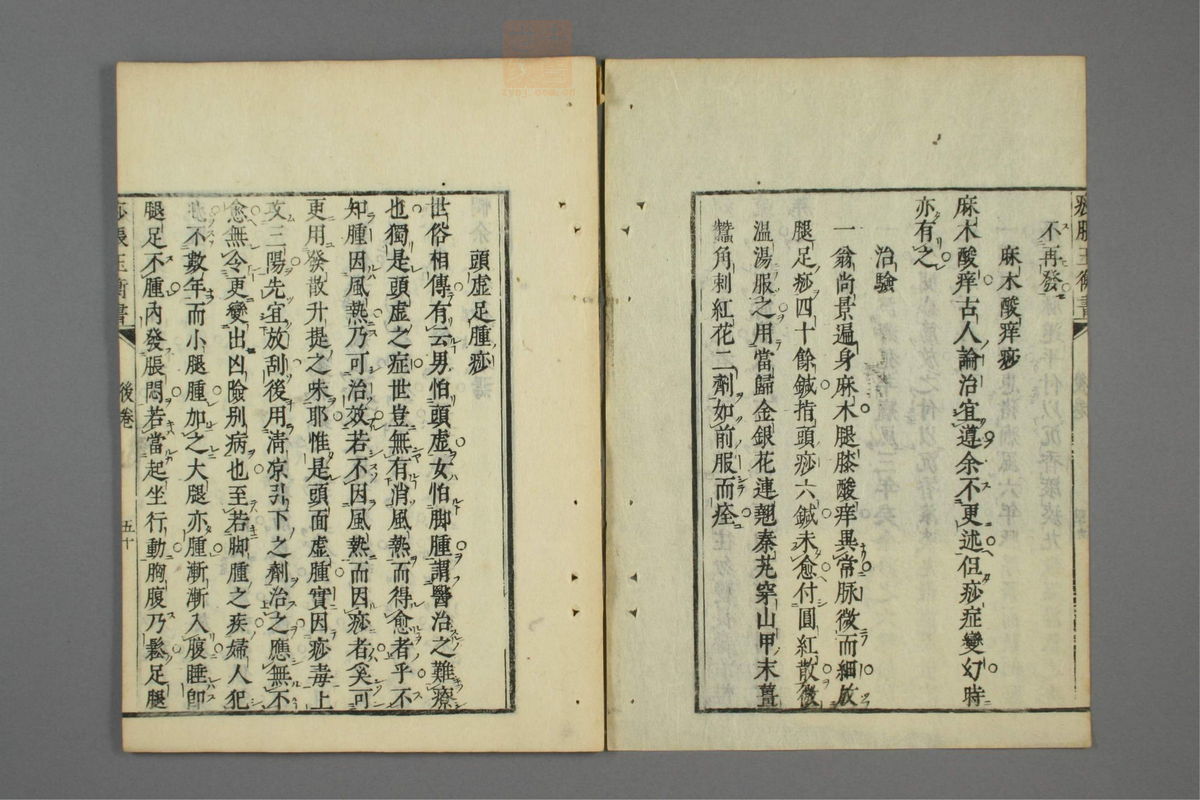 不再發
麻木酸痒痧
麻木酸痒古人論治宜遵余不更述但痧症變幻時
亦有之
治驗
一翁尚景遍身麻木腿膝酸痒異常脉微而細放
腿足痧四十餘鍼指頭痧六鍼未愈付圓紅散微
溫湯服之用當歸金銀花連翹秦艽穿山甲末薑
蠶角刺紅花二劑如前服而痊
頭虛足腫痧
世俗相傳有云男怕頭虛女怕脚腫謂醫治之難療
也獨是頭虛之症世豈無有消風熱而得愈者乎不
知腫因風熱乃可治效若不因風熱而因痧者奚可
更用發散升提之味耶惟是頭面虛腫實因痧毒上
攻三陽先宜放刮後用清凉引下之劑治之應無不
愈無令更變出凶險别病也至若脚腫之疾婦人犯
此不數年而小腿腫加之大腿亦腫漸漸入腹睡卽
腿足不腫內發脹悶若當起坐行動胸腹乃鬆足腿
痧脹玉衡書
後卷
五十